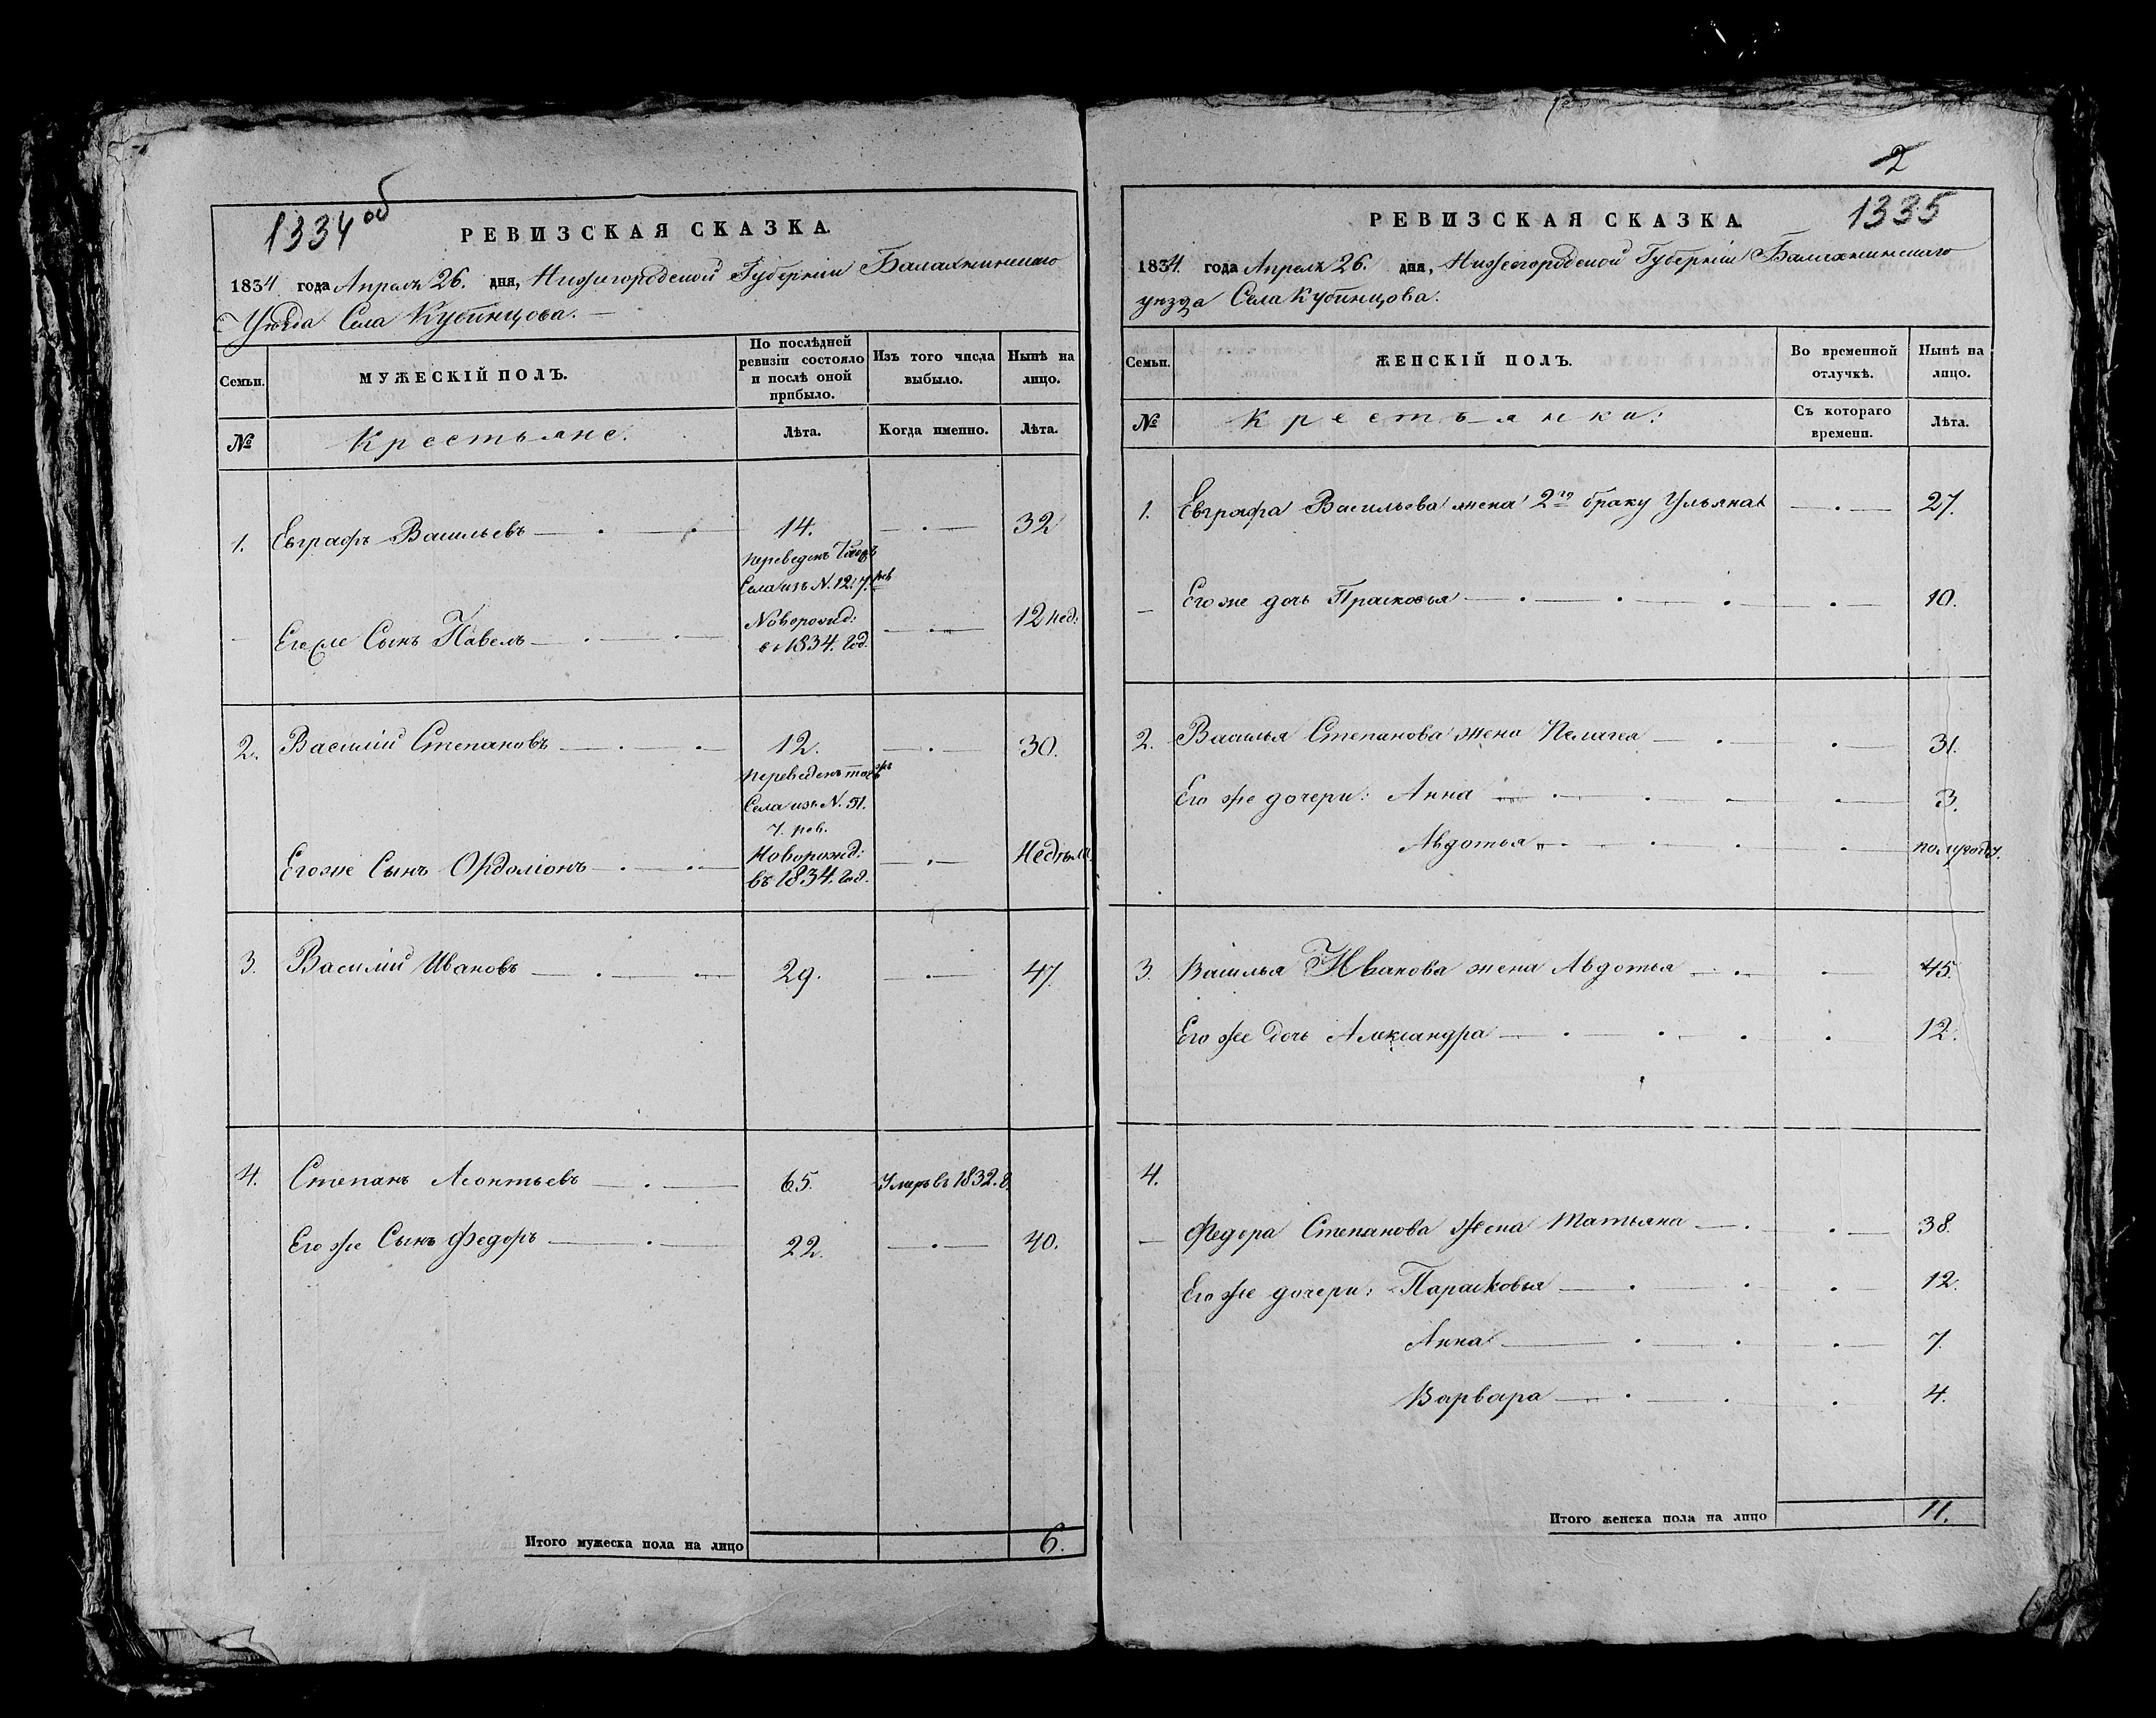 1334 об
РЕВИЗСКАЯ СКАЗКА.
1834 года Апреля 26. дня, Нижегородской Губернии Балахнинскаго
Уезда Села Кубинцова.
Семьи.
МУЖЕСКІЙ ПОЛЪ.
По послѣдней
ревизіи состояло
и послѣ оной
прибыло.
Изъ того числа
выбыло.
Нынѣ на
лицо.
№
Крестьяне.
Лѣта.
Когда именно.
Лѣта.
1. Евграфъ Васильевъ 14. 32
переведенъ
Села изъ N. 12. 7. рев
Его же Сынъ Павелъ Новорожд: 12 нед:
въ 1834. год.
2. Василий Степановъ 12. 30.
переведенъ
Села изъ N. 51.
7. рев.
Его же Сынъ Ордаліонъ Новорожд: Недели
въ 1834. год.
3. Василий Ивановъ 29. 47.
4. Степанъ Леонтьевъ 65. Умеръ въ 1832. г.
Его же Сынъ Федоръ 22. 40.
Итого мужеска пола на лицо 6.
2
1335
РЕВИЗСКАЯ СКАЗКА.
1834. года Апреля 26. дня, Нижегородской Губернии Балахнинскаго
уезда Села Кубинцова.
Семьи.
ЖЕНСКІЙ ПОЛЪ.
Во временной
отлучкѣ.
Нынѣ на
лицо.
№
Крестьянки:
Съ котораго
времени.
Лѣта.
1. Евграфа Васильева жена 2го браку Ульяна 27.
Его же дочь Прасковья 10.
2. Василья Степанова жена Пелагея 31.
Его же дочери: Анна 3.
Авдотья полугоду.
3. Василья Иванова жена Авдотья 45.
Его же дочь Александра 12.
4.
Федора Степанова Жена Татьяна 38.
Его же дочери: Парасковья 12.
Анна 7.
Варвара 4.
Итого женска пола на лицо 11.